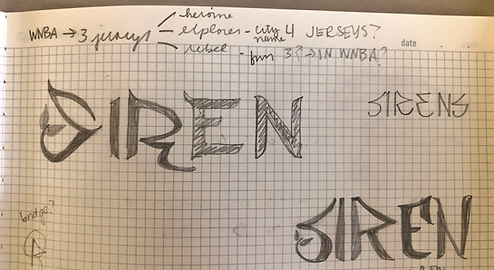 heroine
WNBA → 3 jerseys explorer - city name 4 JERSEYS?
rebel - fun 3? → IN WNBA?
date
SIREN
SIRENS
bridge?
SIREN